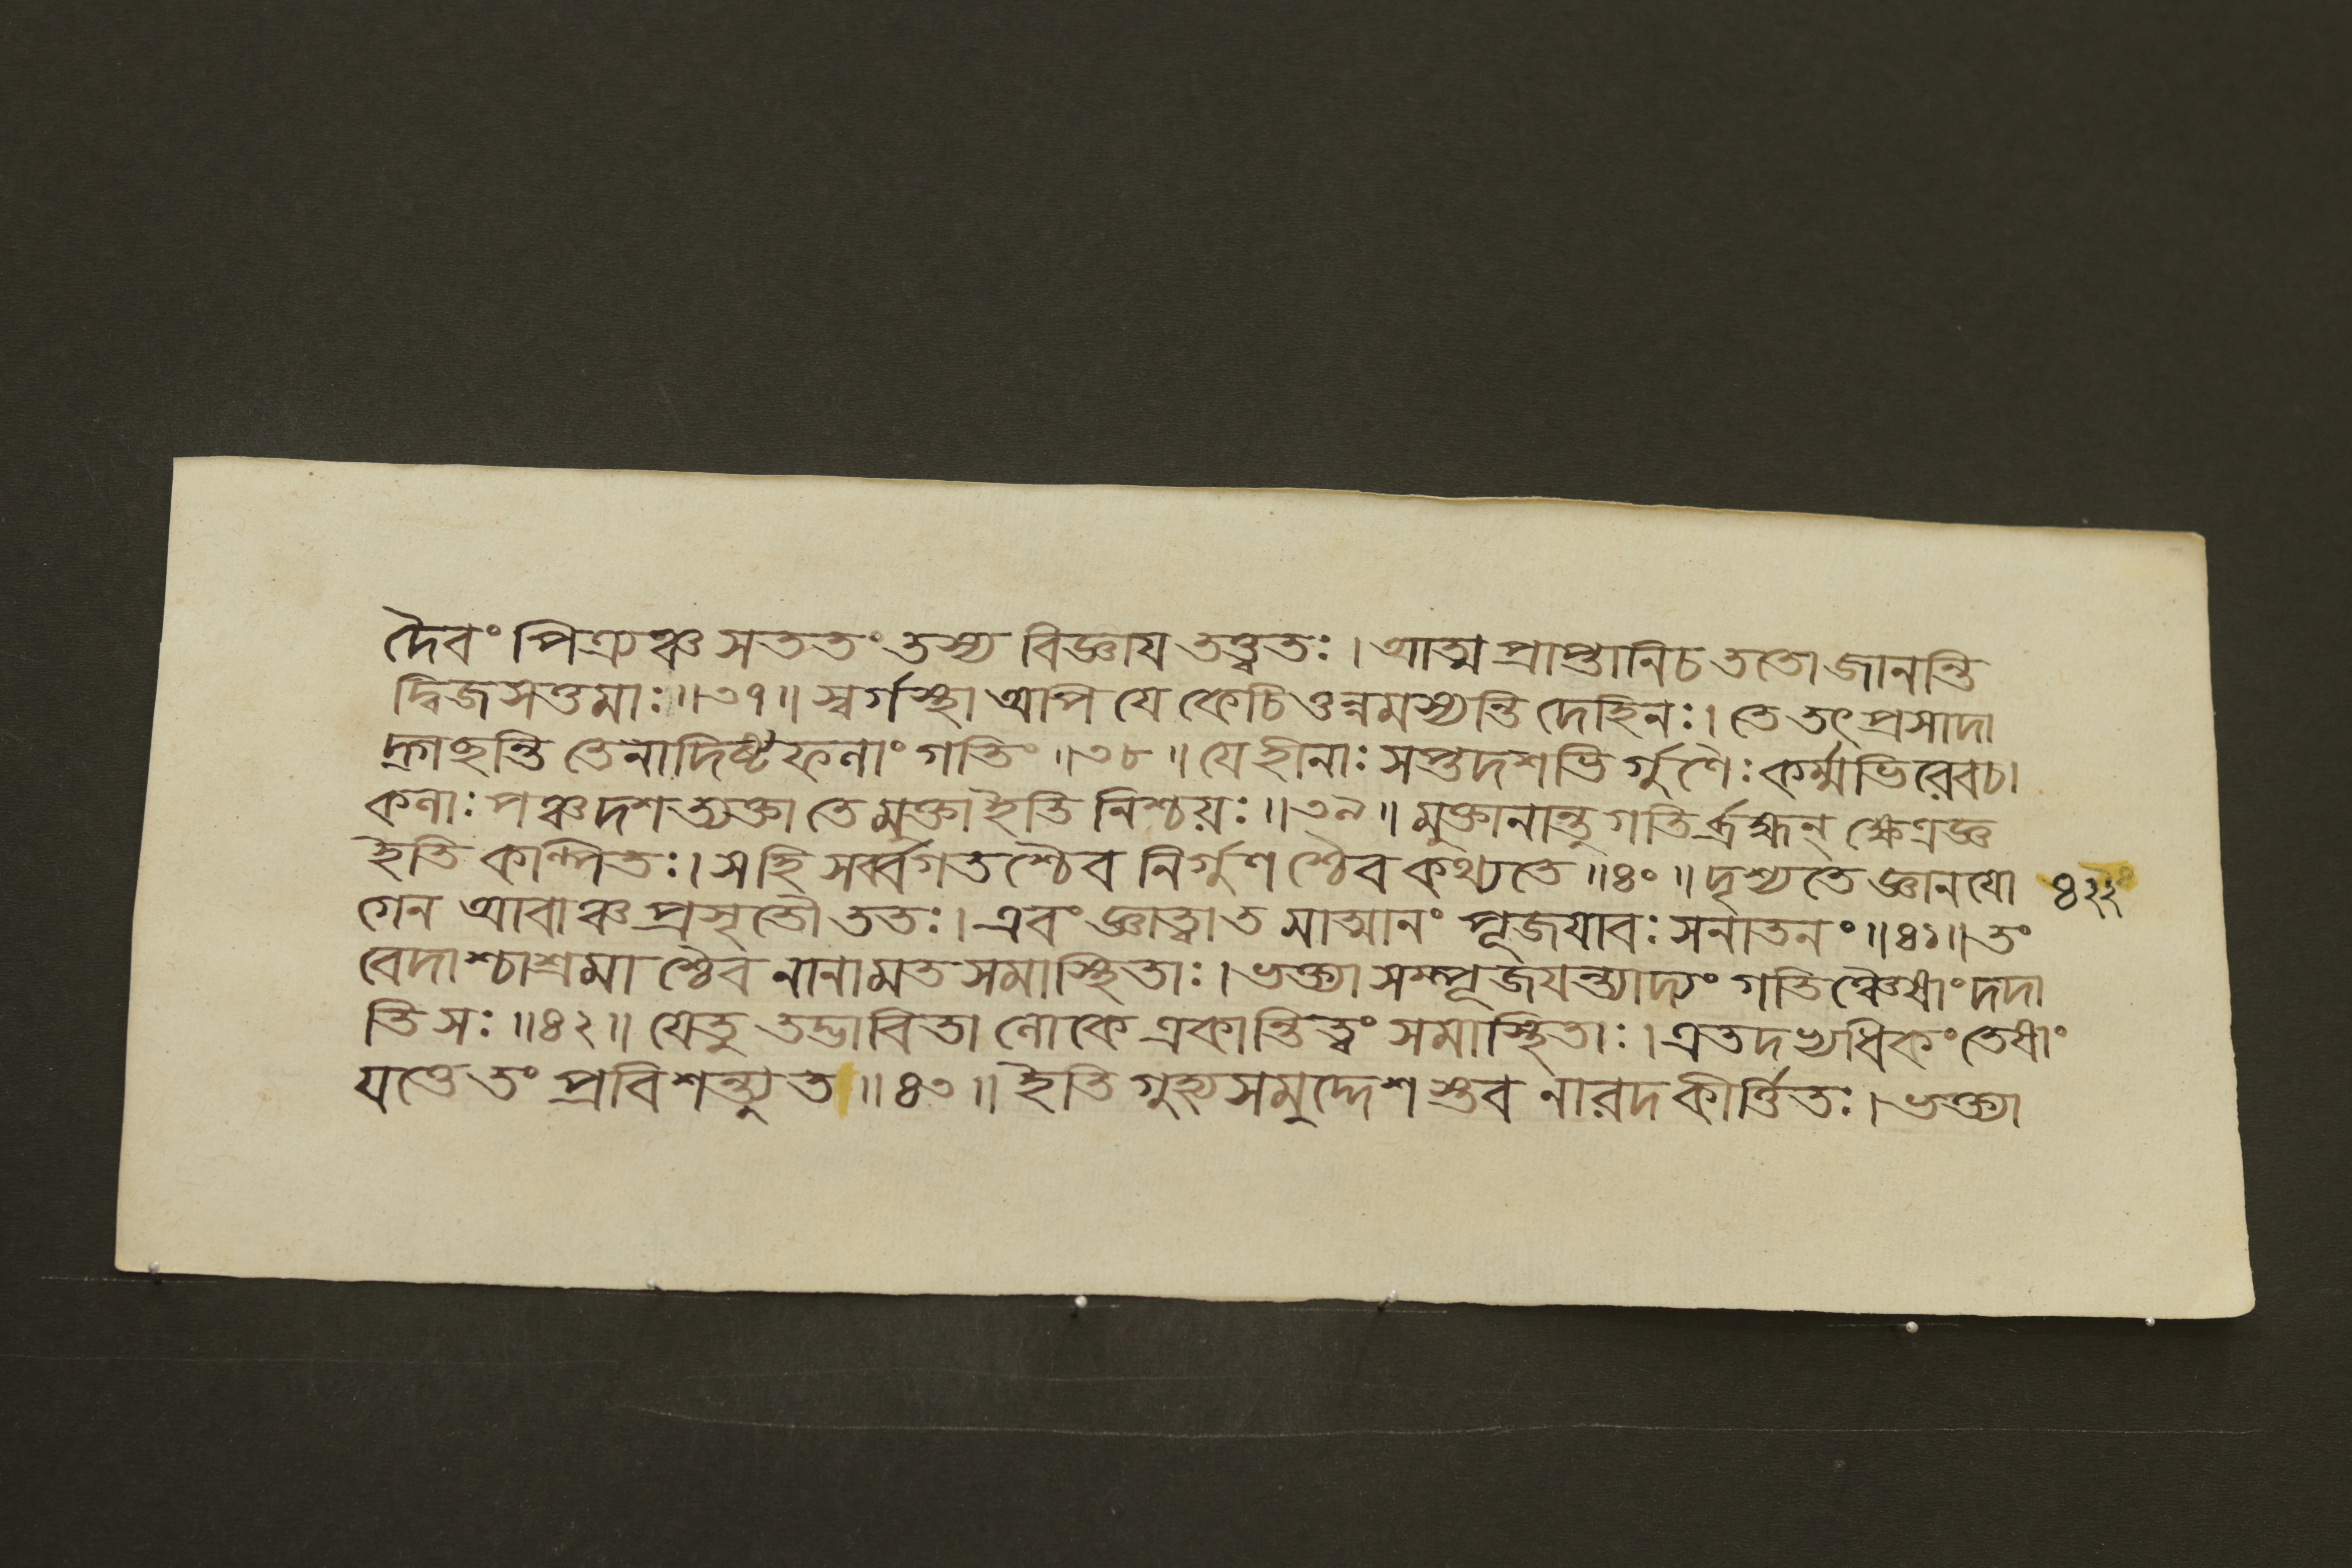 দৈবং পিত্র্যঞ্চ সততং তস্য বিজ্ঞায তত্ত্বতঃ । আত্ম প্রাপ্তানিচ ততো জানন্তি
দ্বিজ সত্তমাঃ ॥৩৭॥ স্বর্গস্থা অপি যে কেচিত্তন্নমস্যন্তি দেহিনঃ । তে তৎ প্রসাদা
দ্গচ্ছন্তি তেনাদিষ্টফলাং গতিং ॥৩৮॥ যে হীনাঃ সপ্তদশভি র্গুণৈঃ কর্ম্মভিরেবচ।
কলাঃ পঞ্চদশ ত্যক্তা তে মুক্তা ইতি নিশ্চয়ঃ ॥৩৯॥ মুক্তানান্তু গতির্ব্রহ্মন্ ক্ষেত্রজ্ঞ
ইতি কল্পিতঃ । সহি সর্ব্বগতশ্চৈব নির্গুণ শ্চৈব কথ্যতে ॥৪০॥ দৃশ্যতে জ্ঞানযো ৪২২
গেন আবাঞ্চ প্রসৃতৌ ততঃ । এবং জ্ঞাত্বা ত মাত্মানং পূজযাবঃ সনাতনং ॥৪১॥ তং
বেদাশ্চাশ্রমা শ্চৈব নানামত সমাস্থিতাঃ । ভক্ত্যা সম্পূজযন্ত্যাদ্যং গতিঞ্চৈষাং দদা
তি সঃ ॥৪২॥ যেতু তদ্ভাবিতা লোকে একান্তিত্বং সমাস্থিতাঃ । এতদভ্যধিকং তেষাং
যত্তে তং প্রবিশন্ত্যুত ॥৪৩॥ ইতি গুহ্যসমুদ্দেশ স্তব নারদ কীর্ত্তিতঃ । ভক্ত্যা